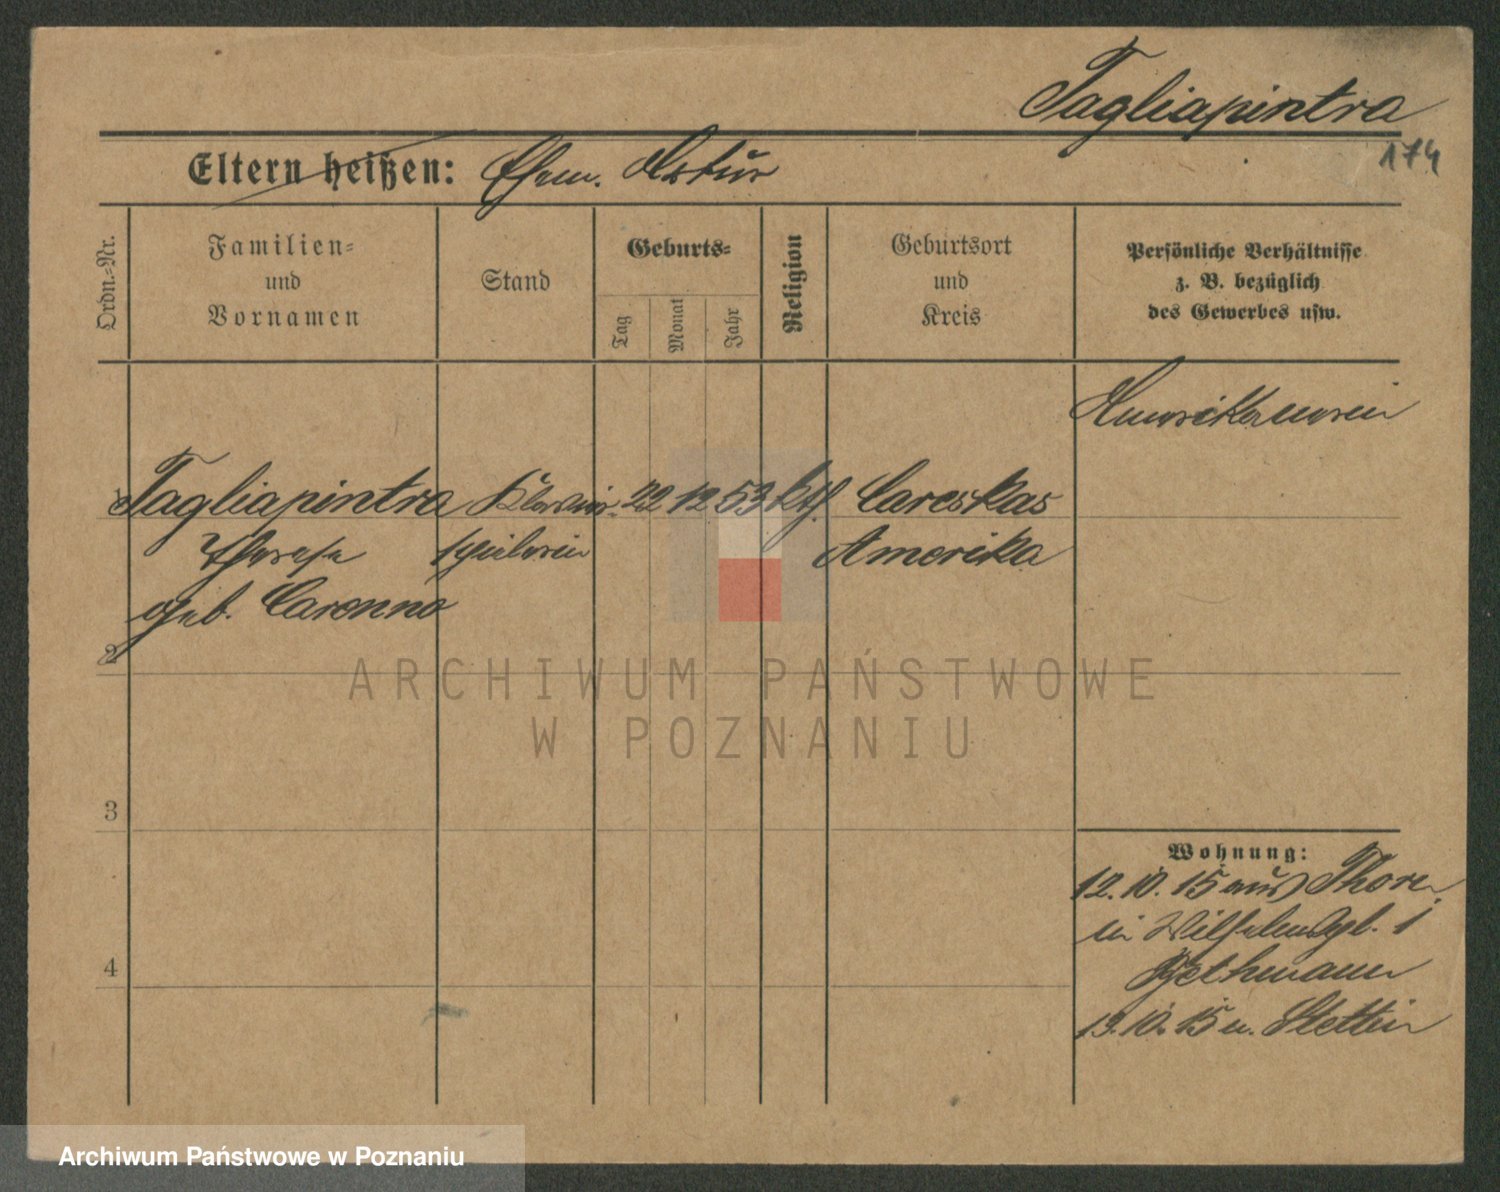 Tagliapintra
174
Eltern heißen: Ehem. Artur
Ordn.=Nr.
Familien=
und
Vornamen
Stand
Geburts=
Tag
Monat
Jahr
Religion
Geburtsort
und
Kreis
Persönliche Verhältnisse
z. B. bezüglich
des Gewerbes usw.
Amerikanerin
1 Tagliapintra Klavier= 22 12 53 kth. Careskas
Therese spielerin Amerika
geb. Carenno
2
3
4
Wohnung:
12. 10. 15 aus Thorn
in Wilhelmspl. 1
13. 10. 15 n. Stettin
ARCHIWUM PAŃSTWOWE
W POZNANIU
Archiwum Państwowe w Poznaniu